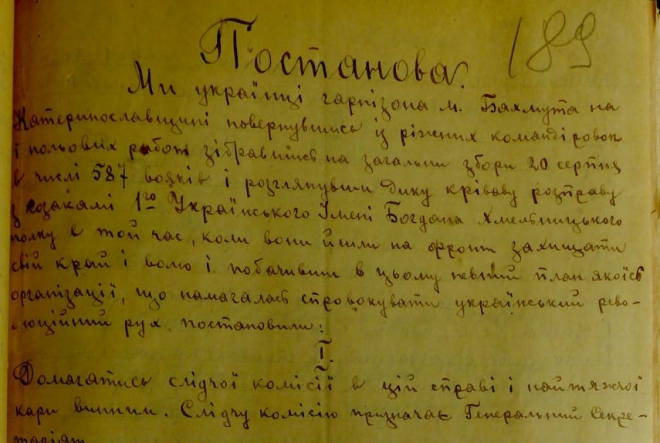 Постанова.
189
Ми українці гарнізона м. Бахмута на
Катеринославщині повернувшись із ріжних командіровок
і польових работ зібравшись на загальни збори 20 серпня
в числі 587 вояків і розглянувши дику кріваву розправу
з козакамі 1го Українського Імені Богдана Хмельницького
полку в той час, коли вони йшли на фронт захищати
свій край і волю і побачивши в цьому певний план якоїсь
організації, що намагалась спровокувати український рево-
люційний рух постановили:
I.
Домагатись слідчої комісії в цій справі і найтяжчої
кари винним. Слідчу комісію призначає Генеральний Секре-
таріат